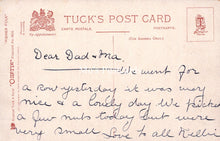 TUCK'S POST CARD
CARTE POSTALE. POSTKARTE.
(FOR ADDRESS ONLY.)
Dear Dad & Ma
We went for
a row yesterday it was very
nice & a lovely day We picked
a few nuts today but were
very small Love to all Nellie